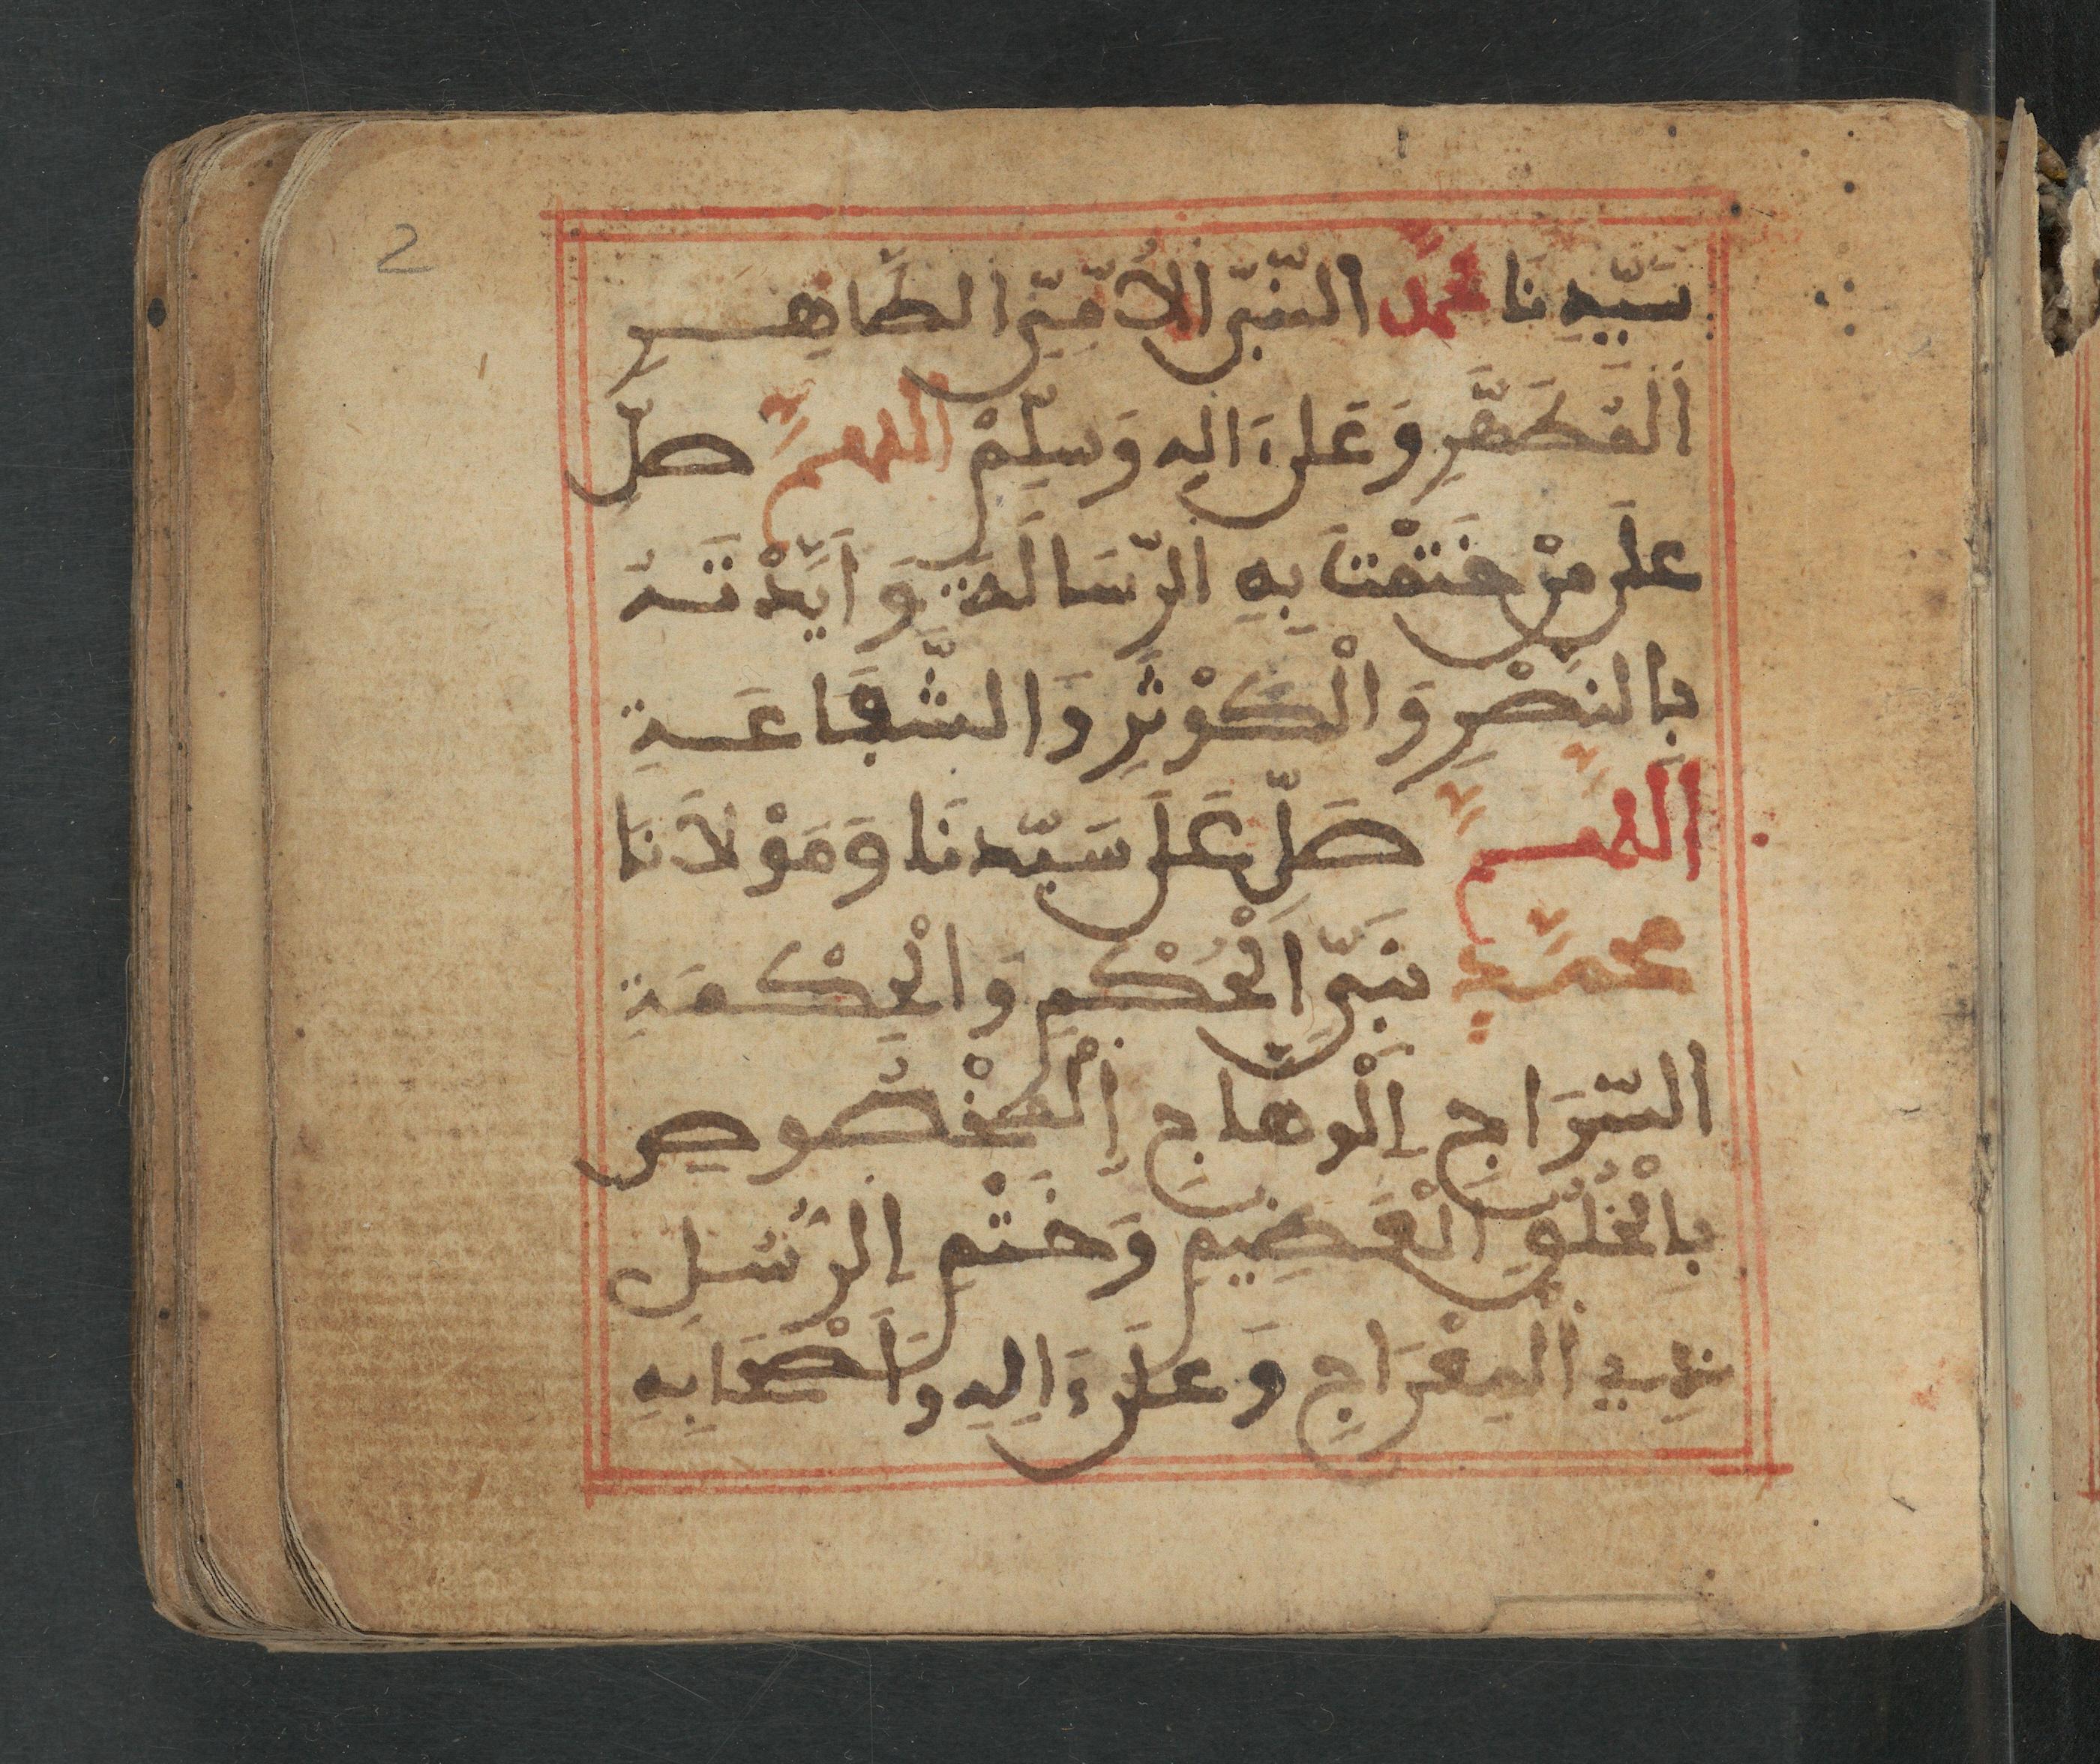 2
سَيِّدِنَا مُحَمَّد النَّبِيِّ الأُمِّيِّ الطَّاهِرِ
الْمُطَهَّرِ وَعَلَى ءَالِهِ وَسَلِّمْ اللَّهُمَّ صَلِّ
عَلَى مَنْ خَتَمْتَ بِهِ الرِّسَالَةَ وَأَيَّدْتَهُ
بِالنَّصْرِ وَالْكَوْثَرِ وَالشَّفَاعَةِ
اللَّهُمَّ صَلِّ عَلَى سَيِّدِنَا وَمَوْلَانَا
مُحَمَّدٍ نَبِيِّ الْحُكْمِ وَالْحِكْمَةِ
السِّرَاجِ الْوَهَّاجِ الْمَخْصُوصِ
بِالْخُلُقِ الْعَظِيمِ وَخَتْمِ الرُّسُلِ
ذِي الْمِعْرَاجِ وَعَلَى ءَالِهِ وَأَصْحَابِهِ